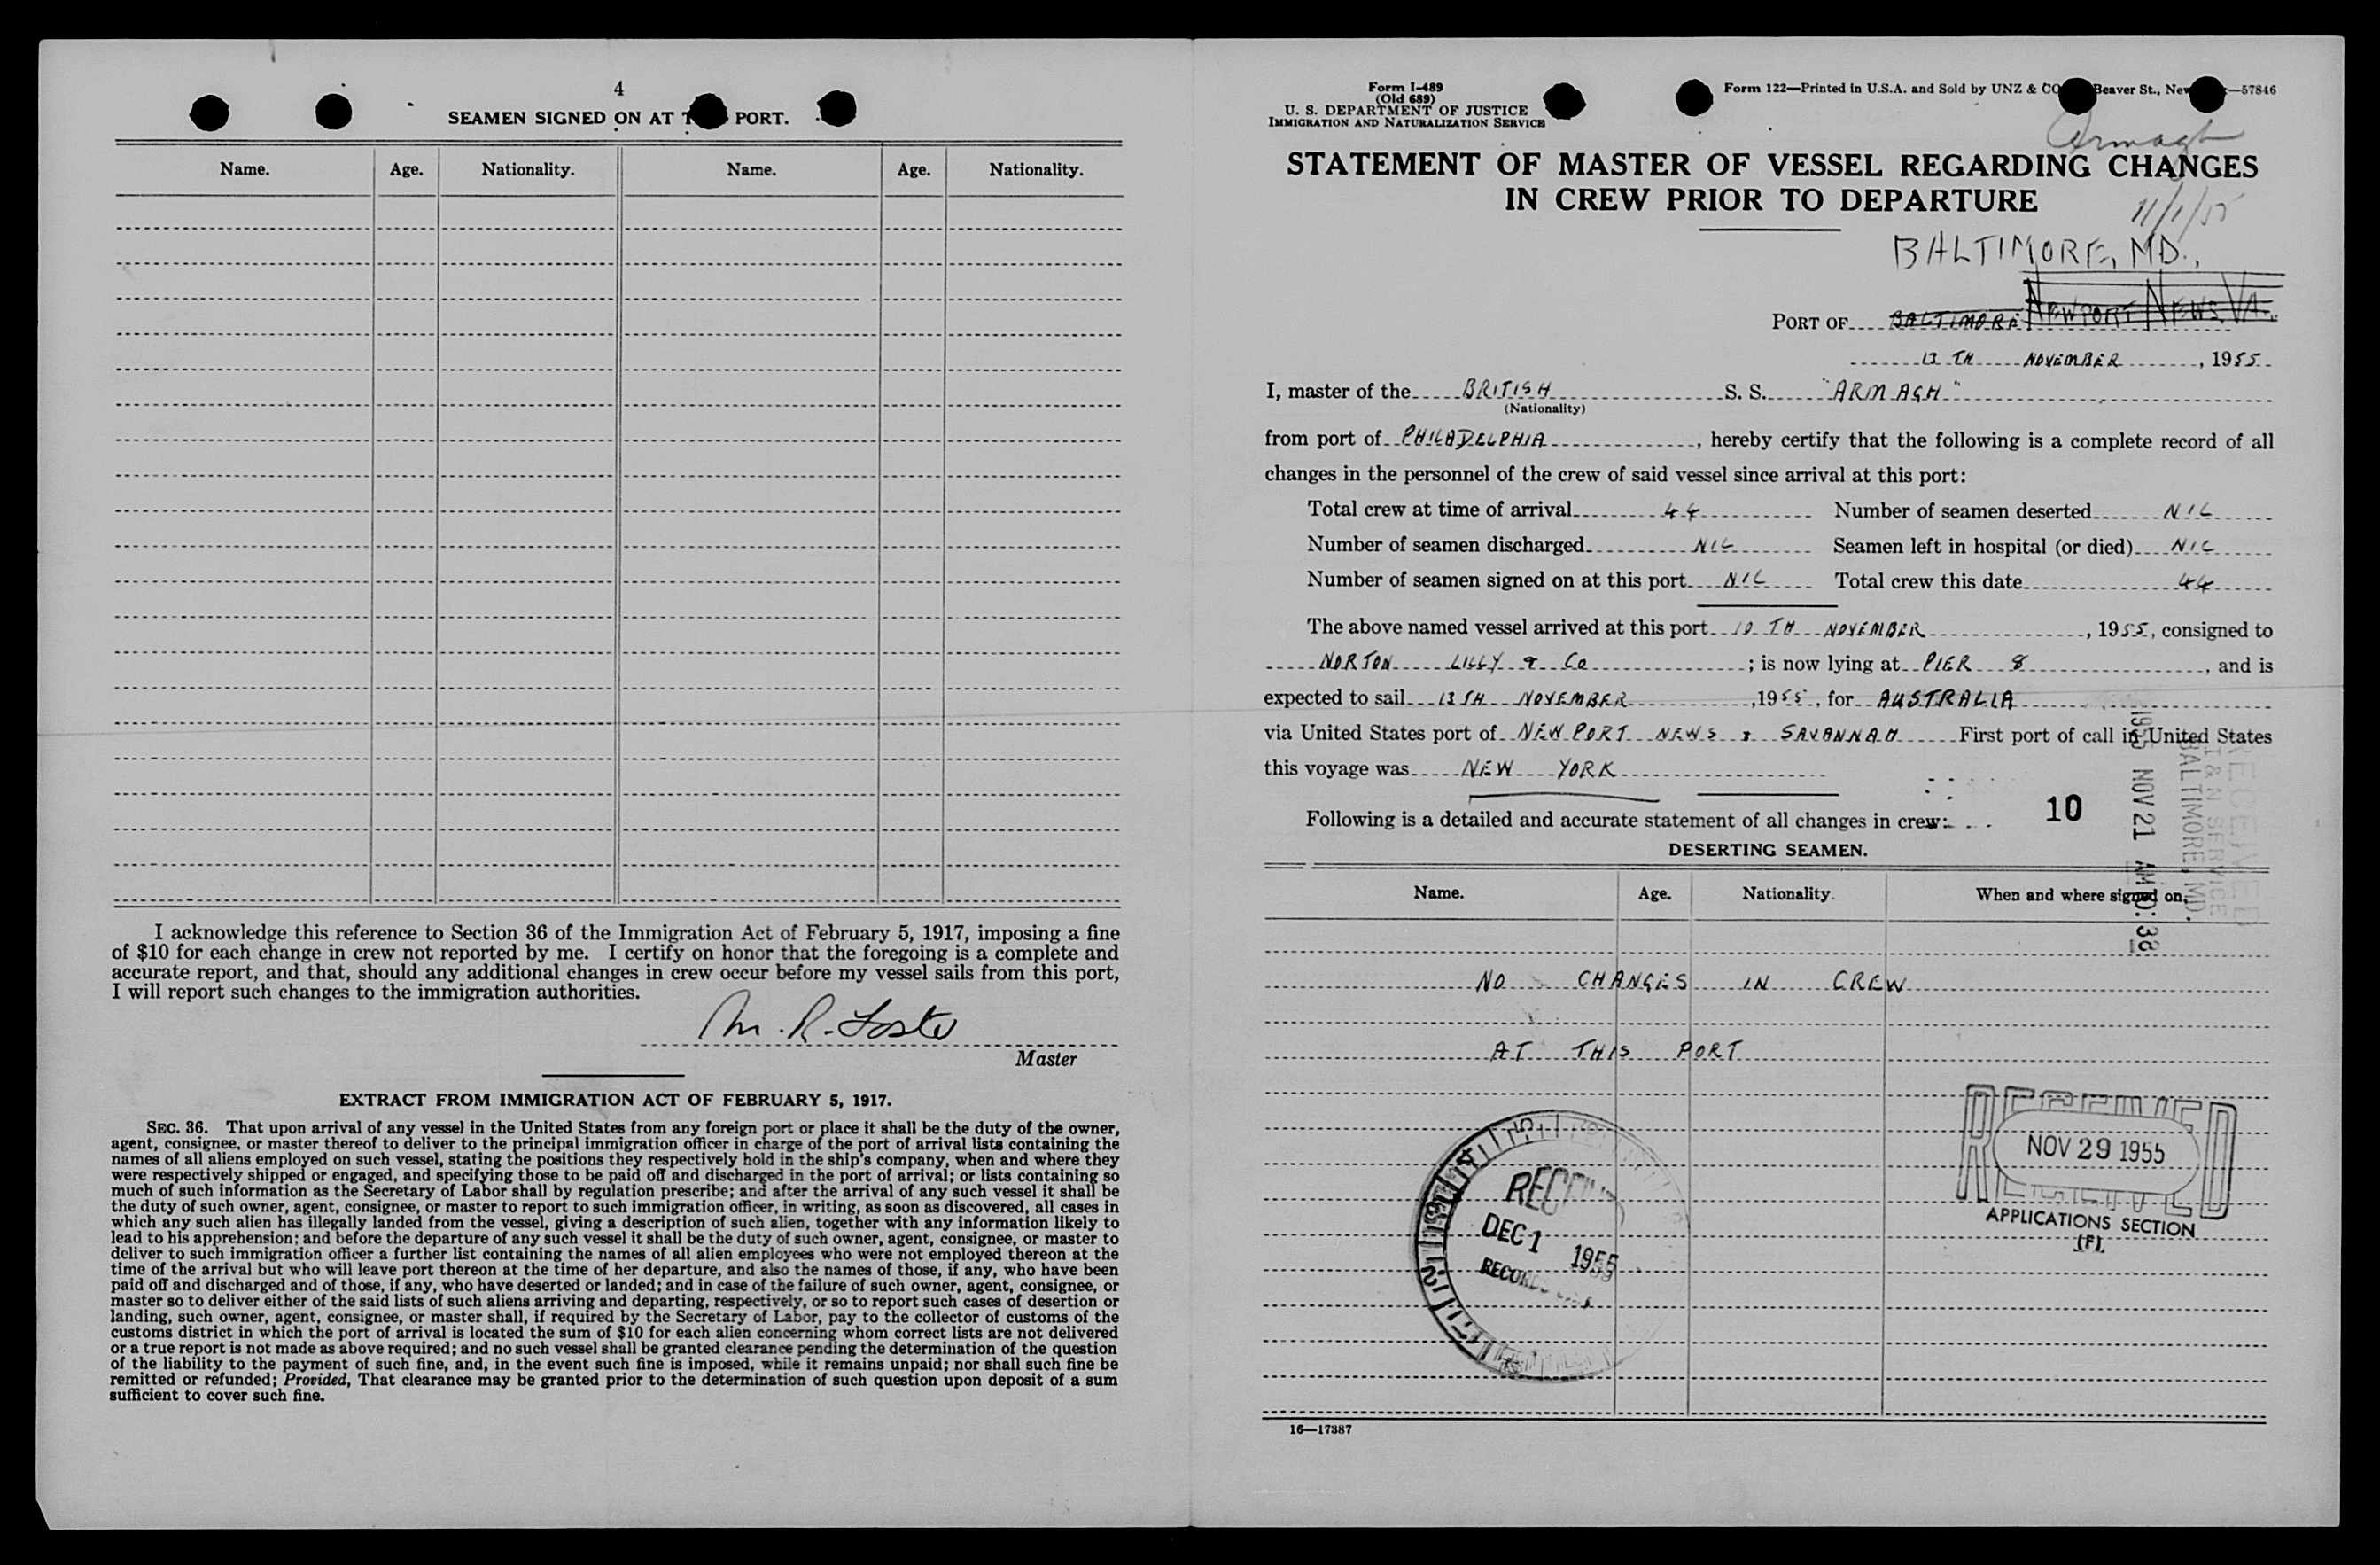 4
SEAMEN SIGNED ON AT PORT.
Name. Age. Nationality. Name. Age. Nationality.
I acknowledge this reference to Section 36 of the Immigration Act of February 5, 1917, imposing a fine
of $10 for each change in crew not reported by me. I certify on honor that the foregoing is a complete and
accurate report, and that, should any additional changes in crew occur before my vessel sails from this port,
I will report such changes to the immigration authorities.
M. R. Foster
Master
EXTRACT FROM IMMIGRATION ACT OF FEBRUARY 5, 1917.
SEC. 36. That upon arrival of any vessel in the United States from any foreign port or place it shall be the duty of the owner,
agent, consignee, or master thereof to deliver to the principal immigration officer in charge of the port of arrival lists containing the
names of all aliens employed on such vessel, stating the positions they respectively hold in the ship's company, when and where they
were respectively shipped or engaged, and specifying those to be paid off and discharged in the port of arrival; or lists containing so
much of such information as the Secretary of Labor shall by regulation prescribe; and after the arrival of any such vessel it shall be
the duty of such owner, agent, consignee, or master to report to such immigration officer, in writing, as soon as discovered, all cases in
which any such alien has illegally landed from the vessel, giving a description of such alien, together with any information likely to
lead to his apprehension; and before the departure of any such vessel it shall be the duty of such owner, agent, consignee, or master to
deliver to such immigration officer a further list containing the names of all alien employees who were not employed thereon at the
time of the arrival but who will leave port thereon at the time of her departure, and also the names of those, if any, who have been
paid off and discharged and of those, if any, who have deserted or landed; and in case of the failure of such owner, agent, consignee, or
master so to deliver either of the said lists of such aliens arriving and departing, respectively, or so to report such cases of desertion or
landing, such owner, agent, consignee, or master shall, if required by the Secretary of Labor, pay to the collector of customs of the
customs district in which the port of arrival is located the sum of $10 for each alien concerning whom correct lists are not delivered
or a true report is not made as above required; and no such vessel shall be granted clearance pending the determination of the question
of the liability to the payment of such fine, and, in the event such fine is imposed, while it remains unpaid; nor shall such fine be
remitted or refunded; Provided, That clearance may be granted prior to the determination of such question upon deposit of a sum
sufficient to cover such fine.
Form I-489
(Old 689)
U. S. DEPARTMENT OF JUSTICE
IMMIGRATION AND NATURALIZATION SERVICE
Form 122—Printed in U.S.A. and Sold by UNZ & CO Beaver St., New —57846
Armagh
STATEMENT OF MASTER OF VESSEL REGARDING CHANGES
IN CREW PRIOR TO DEPARTURE
11/1/55
BALTIMORE, MD.,
PORT OF BALTIMORE NEWPORT NEWS, VA.
13 TH NOVEMBER, 1955
I, master of the BRITISH S. S. "ARMAGH"
(Nationality)
from port of PHILADELPHIA, hereby certify that the following is a complete record of all
changes in the personnel of the crew of said vessel since arrival at this port:
Total crew at time of arrival 44 Number of seamen deserted NIL
Number of seamen discharged NIL Seamen left in hospital (or died) NIL
Number of seamen signed on at this port NIL Total crew this date 44
The above named vessel arrived at this port 10 TH NOVEMBER, 1955, consigned to
NORTON LILLY & Co; is now lying at PIER 8, and is
expected to sail 13TH NOVEMBER, 1955, for AUSTRALIA
via United States port of NEWPORT NEWS & SAVANNAH First port of call in United States
this voyage was NEW YORK
Following is a detailed and accurate statement of all changes in crew:
10
RECEIVED
I & N SERVICE
BALTIMORE, MD.
1955 NOV 21 AM 10:38
DESERTING SEAMEN.
Name. Age. Nationality. When and where signed on.
NO CHANGES IN CREW
AT THIS PORT
RECEIVED
DEC 1 1955
RECEIVED
NOV 29 1955
APPLICATIONS SECTION
(F)
16—17387